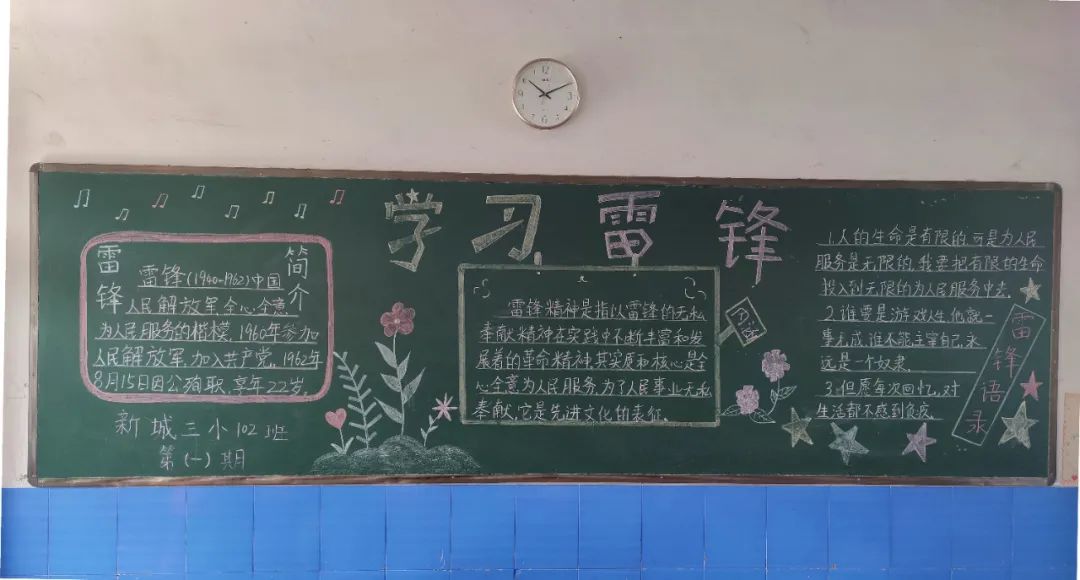 学习雷锋
雷锋简介
雷锋(1940-1962)中国
人民解放军全心全意
为人民服务的楷模，1960年参加
人民解放军，加入共产党。1962年
8月15日因公殉职，享年22岁。
新城三小102班
第(一)期
雷锋精神是指以雷锋的无私
奉献精神在实践中不断丰富和发
展着的革命精神，其实质和核心是全
心全意为人民服务，为了人民事业无私
奉献，它是先进文化的表征。
1.人的生命是有限的，可是为人民
服务是无限的，我要把有限的生命
投入到无限的为人民服务中去。
2.谁要是游戏人生，他就一
事无成，谁不能主宰自己，永
远是一个奴隶。
3.但愿每次回忆，对
生活都不感到负疚
雷锋语录